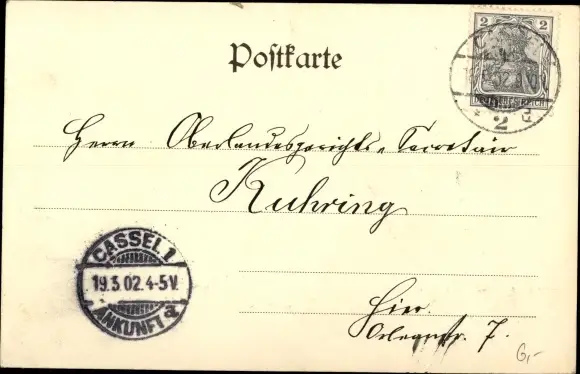 2 2
DEUTSCHES REICH
2
Postkarte
Herrn Oberlandesgerichts-Secretair
Kuhring
CASSEL 1
19.3.02.4-5V.
ANKUNFT a.
Hier.
7.
6,-